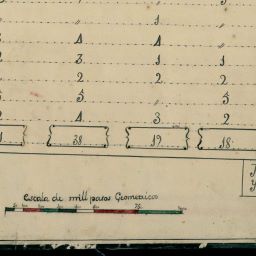 1 „
4 4 „
3 1 1
2 2 2
5 „ 5
4 3 2
38 19 18
Escala de mill pasos Geometricos